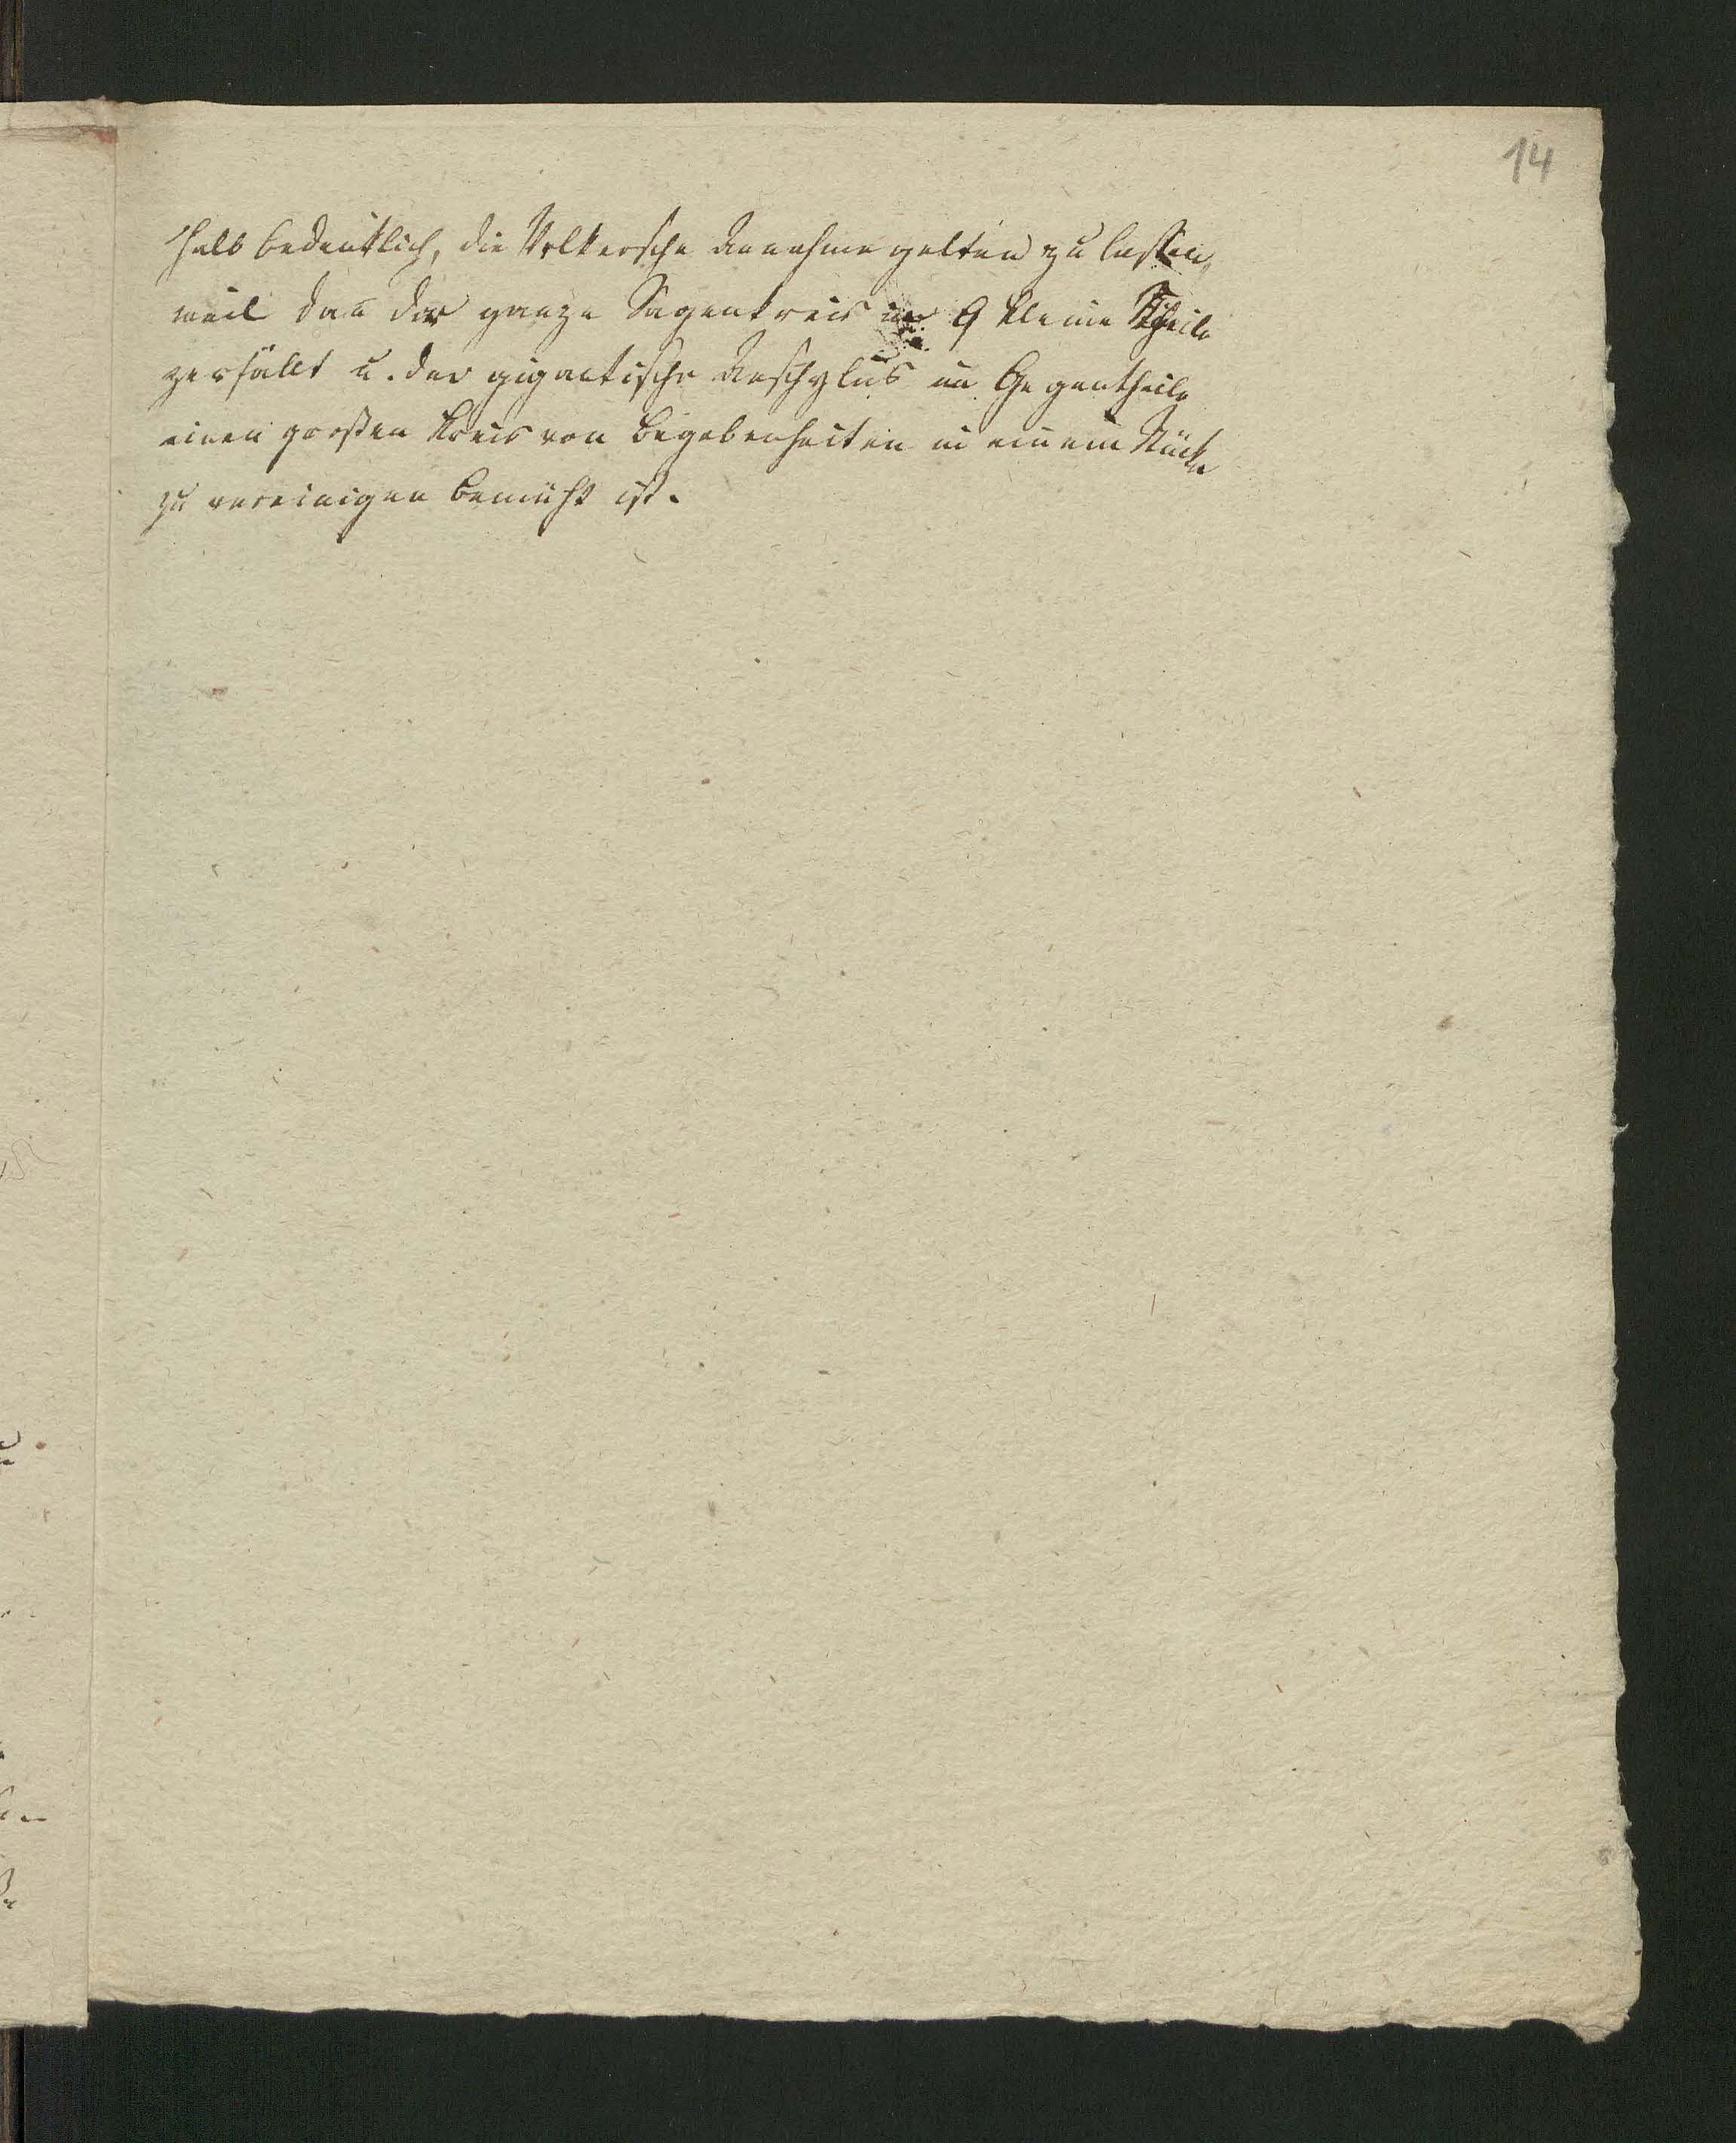 14
halb bedenklich, die Völkersche Annahme gelten zu lassen,
weil dañ der ganze Sagenkreis in 9 kleine Theile
zerfällt u. der gigantische Aeschylus im Gegentheile
einen großen Kreis von Begebenheiten in einem Stücke
zu vereinigen bemüht ist.